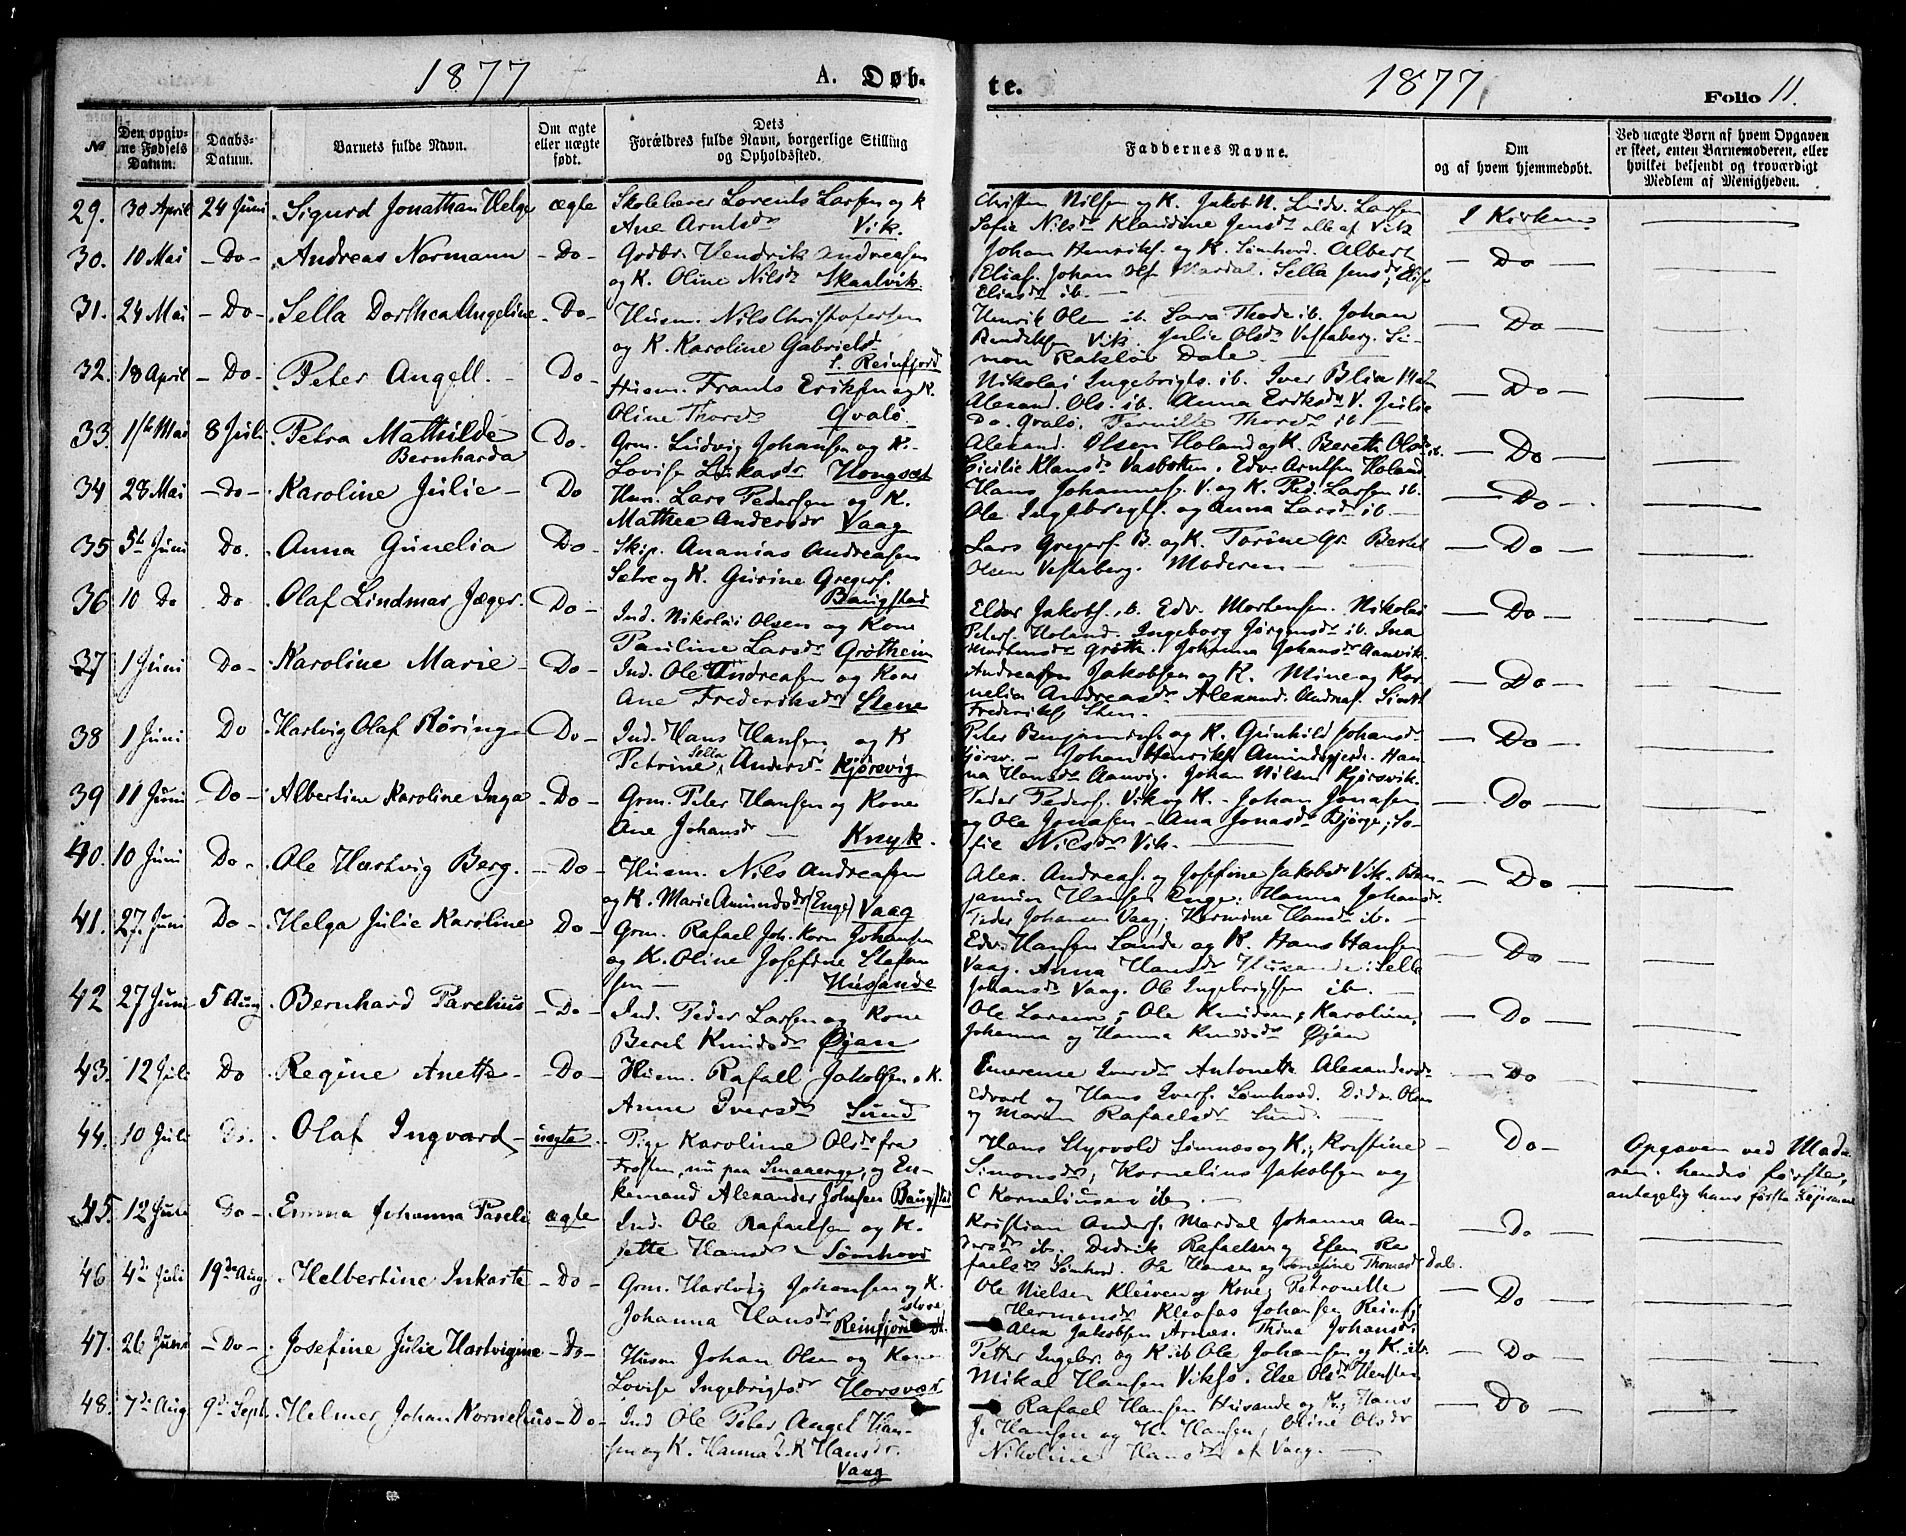 1877 A. Døb-
te. 1877 Folio 11.
No
Den opgiv-
ne Fødsels
Datum.
Daabs-
Datum.
Barnets fulde Navn.
Om ægte
eller uægte
født.
Dets
Forældres fulde Navn, borgerlige Stilling
og Opholdssted.
Faddernes Navne.
Om
og af hvem hjemmedøbt.
Ved uægte Børn af hvem Opgaven
er skeet, enten Barnemoderen, eller
hvilket bekjendt og troværdigt
Medlem af Menigheden.
29. 30 April 24 Juni Sigurd Jonathan Helge ægte Skolelærer Lorents Larsen og K
Ane Arntsdr Vik.
Christen Nilsen og K. Jakob N. Ludv. Larsen
Sofie Nilsdr Klaudine Jensdr alle af Vik
I Kirken
30. 10 Mai - Do - Andreas Normann - Do - Grdbr. Hendrik Andreasen
og K. Oline Nilsdr Skaalvik.
Johan Henriks. og K. Sømhovd. Albert
Elias. Johan Ols. Mardal. Sella Jensdr; Elis.
Eliasdr ib. -
- Do -
31. 24 Mai - Do - Sella Dorthea Angeline - Do - Husm. Nils Christofersen
og K. Karoline Gabrielsdr
l. Reinfjord
Henrik Olsen ib. Lars Thode ib. Johan
Bendiksen Vik. Julie Olsdr Vestaberg. Si-
mon Dale.
- Do -
32. 18 April - Do - Peter Angell. - Do - Husm. Frants Eriksen og K.
Oline Thorsdr Qvalø
Nikolai Ingebrigts. ib. Iver Blix
Alexand. Ols. ib. Anna Eriksdr V. Julie
Do. Qvalø. Thorsdr ib -
- Do -
33. 1ste Mai 8 Juli Petra Mathilde
Bernharda
Do. Grm. Ludvig Johansen og K.
Lovise Lukasdr Hongset
Alexand. Olsen Holand og K. Bereth Olsdr ib.
Cicilie Klausdr Vasbotten. Edv. Arntsen Holand
- Do -
34 28 Mai - Do - Karoline Julie - Do Lars Pedersen og K.
Mathea Andersdr Vaag
Hans Johannes. V. og K. Ped. Larsen ib.
Ole Ingebrigts. og Anna Larsdr ib. -
- Do -
35 5te Juni Do. Anna Gunelia Do - Skip. Ananias Andreasen
Sætre og K. Gurine Gregers.
Baugstad
Lars Gregers. B. og K. Torine Gr. Bertel
Olsen Vestaberg. Moderen -
- Do -
36 10 Do Do Olaf Lindmar Jæger. Do - Ind. Nikolai Olsen og Kone
Pauline Larsdr Grøtheim
Eldor Jakobs. ib. Edv. Mortensen. Nikolai
Peters. Holand. Ingeborg Jørgensdr ib. Ina
Mortensdr Grøth. Johanna Johansdr Aanvik.
- Do -
37 1 Juni Do - Karoline Marie - Do - Ind. Ole Andreasen og Kone
Ane Frederiksdr Stene
Andreasen Jakobsen og K. Mine og Kor-
nelia Andreasdr Alexand. Andreas. Smith
Frederiks. Sten.
- Do -
38 1 Juni Do Hartvig Olaf Røring Do - Ind. Hans Hansen og K
Petrine Sella Andersdr Kjørsvig
Peter Benjamins. og K. Gunhild Johansdr
Kjørsv. - Johan Henriks. Amundsgjerd. Han-
na Hansdr Aanvig. Johan Nilsen Kjørsvik.
- Do -
39 11 Juni - Do - Albertine Karoline Inga - Do - Grm. Peter Hansen og Kone
Ane Johansdr - Knyk.
Peder Peders. Vik og K. - Johan Jonasen
og Ole Jonasen - Ana Jonasdr Bjørge; So-
fie Nilsdr Vik. -
- Do -
40. 10 Juni Do - Ole Hartvig Berg. - Do - Husm. Nils Andreasen
og K. Marie Amundsdr (Enge) Vaag
Alex. Andreas. og Josefine Jakobsdr Vik. Ben-
jamin Hansen Enge; Hanna Johansdr.
Peder Johansen Vaag; Hermine Hansdr ib. -
- Do -
41. 27. Juni Do - Helga Julie Karoline Do - Grm. Rafael Joh. Korn Johansen
og K. Oline Josefine Stefan
sen - Husande
Edv. Hansen Lande og K. Hans Hansen
Vaag. Anna Hansdr Husande; Sella
Johansdr Vaag. Ole Ingebrigtsen ib. -
- Do -
42 27 Juni 5 Aug Bernhard Parelius - Do - Ind. Peder Larsen og Kone
Beret Knudsdr Øjan
Ole Larsen; Ole Knudsen; Karoline,
Johanna og Hanna Knudsdr Øjan
- Do -
43. 12 Juli Do Regine Anette - - Do - Husm. Rafael Jakobsen o K.
Anne Iversdr Sund
Emerense Iversdr Antonette Alexandersdr
Edvart og Hans Ivers. Sømhovd. Didr. Olsen
og Maren Rafaelsdr Sund -
- Do -
44. 10 Juli Do. Olaf Ingvard - uægte. Pige Karoline Olsdr fra
Frosten, nu paa Smaaenge, og En-
kemand Alexander Johnsen Baugstad
Hans Styrvold Simnæs og K; Kristine
Simonsdr; Kornelius Jakobsen og
C Korneliusen ib -
Do - Opgaven ved Mode-
ren. hendes første,
antagelig hans første Leiermaal
45. 12 Juli Do - Emma Johanna Pareli ægte Ind. Ole Rafaelsen og K.
Jette Hansdr - Sømhovd
Kristian Anders. Mardal Johanne An-
dersdr ib. Didrik Rafaelsen og Ra
faelsdr Sømhovd. Ole Hansen og Josefine Thomasdr Dale.
- Do -
46. 4de Juli 19de Aug Helbertine Inkarte - Do - Grm. Hartvig Johansen og K.
Johanna Hansdr store
Reinfjord
Ole Nielsen Kleiven og Kone; Petronelle
Hermansdr Kleofas Johansen Reinfj.
Alex Jakobsen Arnæs. Thina Johansdr.
- Do -
47. 26 Juni - Do - Josefine Julie Hartvigine - Do - Husm Johan Olsen og Kone
Lovise Ingebrigtsdr Horsvær
Petter Ingebr. og K. ib Ole Johansen og K. ib.
Mikal Hansen Viksø. Else Olsdr Hensten
- Do -
48. 7de Aug 9de Sept. Helmer Johan Kornelius - Do - Ind Ole Peter Angel Han-
sen og K. Hanna E. K Hansdr.
Vaag
Rafael Hansen Husande og K; Hans
J. Hansen og K. Hansen; Oline Olsdr
Nikoline Hansdr af Vaag. -
- Do -